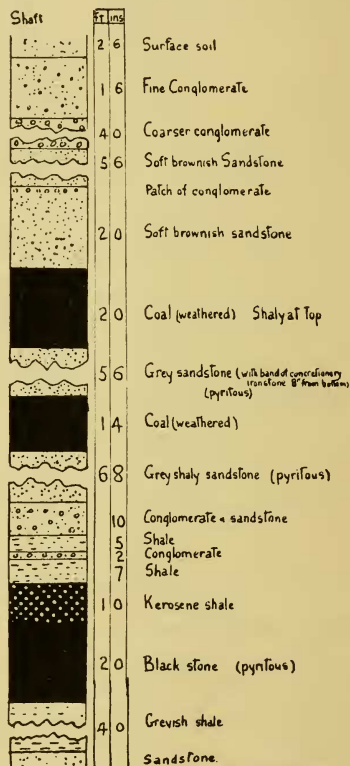 Shaft ft ins
2 6 Surface soil
1 6 Fine Conglomerate
4 0 Coarser conglomerate
5 6 Soft brownish Sandstone
Patch of conglomerate
2 0 Soft brownish sandstone
2 0 Coal (weathered) Shaly at Top
5 6 Grey sandstone (with band of concretionary
ironstone 8" from bottom)
(pyritous)
1 4 Coal (weathered)
6 8 Grey shaly sandstone (pyritous)
10 Conglomerate & sandstone
5 Shale
2 Conglomerate
7 Shale
1 0 Kerosene shale
2 0 Black stone (pyritous)
4 0 Greyish shale
Sandstone.